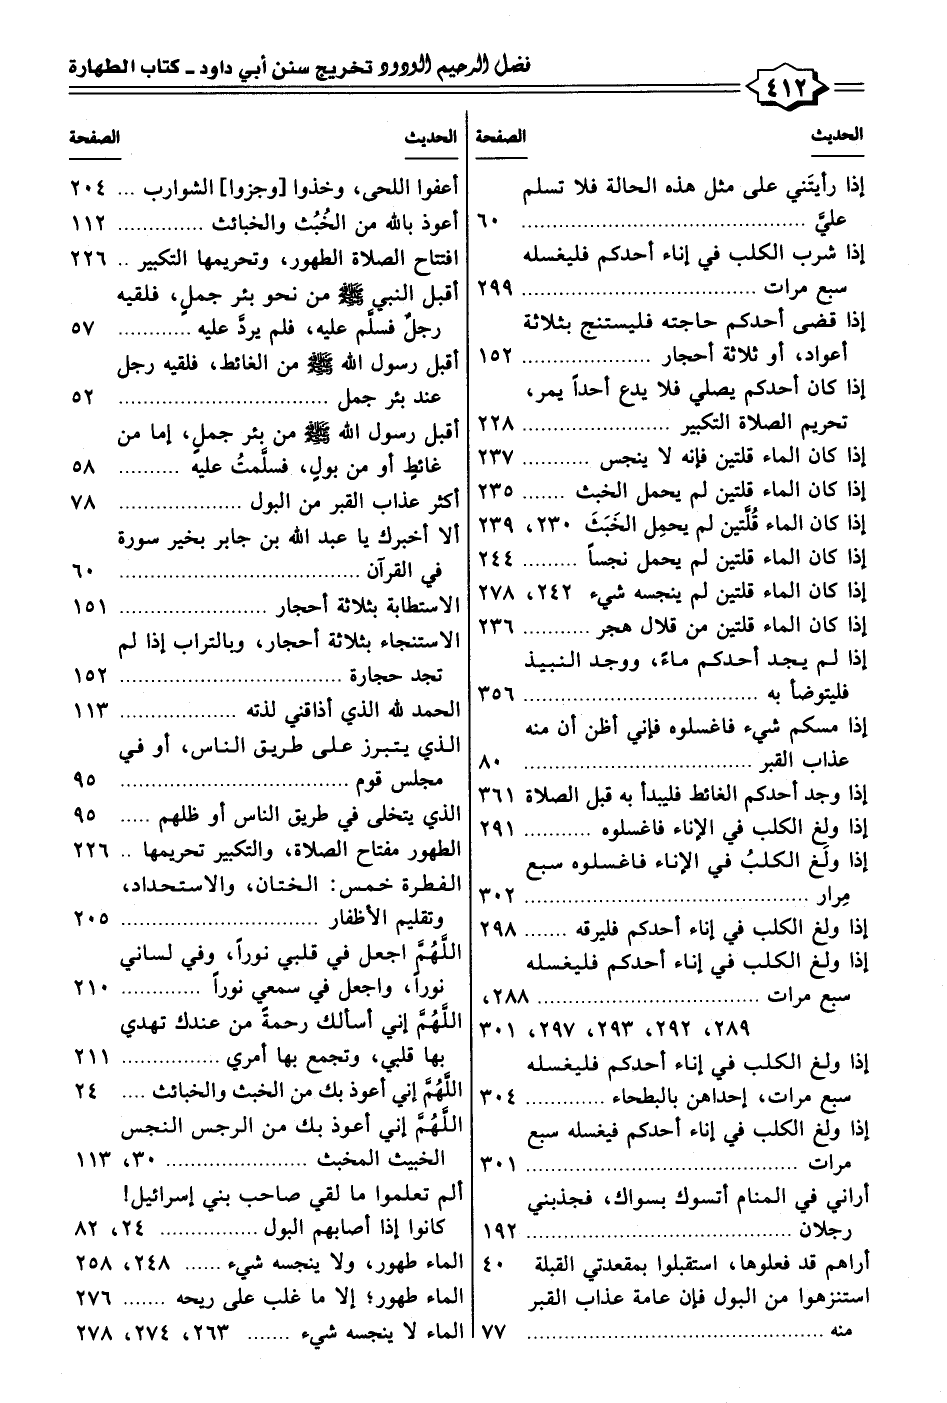 فضل الرحيم الودود تخريج سنن أبي داود - كتاب الطهارة
٤١٢
الحديث الصفحة
إذا رأيتَني على مثل هذه الحالة فلا تسلم
عليَّ ........ ٦٠
إذا شرب الكلب في إناء أحدكم فليغسله
سبع مرات ........ ٢٩٩
إذا قضى أحدكم حاجته فليستنج بثلاثة
أعواد، أو ثلاثة أحجار ........ ١٥٢
إذا كان أحدكم يصلي فلا يدع أحداً يمر،
تحريم الصلاة التكبير ........ ٢٢٨
إذا كان الماء قلتين فإنه لا ينجس ........ ٢٣٧
إذا كان الماء قلتين لم يحمل الخبث ....... ٢٣٥
إذا كان الماء قُلَّتين لم يحمِل الخَبَثَ ٢٣٠، ٢٣٩
إذا كان الماء قلتين لم يحمل نجساً ........ ٢٤٤
إذا كان الماء قلتين لم ينجسه شيء ٢٤٢، ٢٧٨
إذا كان الماء قلتين من قلال هجر ........ ٢٣٦
إذا لم يجد أحدكم ماءً، ووجد النبيذ
فليتوضأ به ........ ٣٥٦
إذا مسكم شيء فاغسلوه فإني أظن أن منه
عذاب القبر ........ ٨٠
إذا وجد أحدكم الغائط فليبدأ به قبل الصلاة ٣٦١
إذا ولغ الكلب في الإناء فاغسلوه ........ ٢٩١
إذا ولَغ الكلبُ في الإناء فاغسلوه سبع
مِرار ........ ٣٠٢
إذا ولغ الكلب في إناء أحدكم فليرقه ....... ٢٩٨
إذا ولغ الكلب في إناء أحدكم فليغسله
سبع مرات ........ ٢٨٨،
٢٨٩، ٢٩٢، ٢٩٣، ٢٩٧، ٣٠١
إذا ولغ الكلب في إناء أحدكم فليغسله
سبع مرات، إحداهن بالبطحاء ........ ٣٠٤
إذا ولغ الكلب في إناء أحدكم فيغسله سبع
مرات ........ ٣٠١
أراني في المنام أتسوك بسواك، فجذبني
رجلان ........ ١٩٢
أراهم قد فعلوها، استقبلوا بمقعدتي القبلة ٤٠
استنزهوا من البول فإن عامة عذاب القبر
منه ........ ٧٧
الحديث الصفحة
أعفوا اللحى، وخذوا [وجزوا] الشوارب ... ٢٠٤
أعوذ بالله من الخُبُث والخبائث ........ ١١٢
افتتاح الصلاة الطهور، وتحريمها التكبير .. ٢٢٦
أقبل النبي ﷺ من نحو بئر جملٍ، فلقيه
رجلٌ فسلَّم عليه، فلم يردَّ عليه ........ ٥٧
أقبل رسول الله ﷺ من الغائط، فلقيه رجل
عند بئر جمل ........ ٥٢
أقبل رسول الله ﷺ من بئر جملٍ، إما من
غائطٍ أو من بولٍ، فسلَّمتُ عليه ........ ٥٨
أكثر عذاب القبر من البول ........ ٧٨
ألا أخبرك يا عبد الله بن جابر بخير سورة
في القرآن ........ ٦٠
الاستطابة بثلاثة أحجار ........ ١٥١
الاستنجاء بثلاثة أحجار، وبالتراب إذا لم
تجد حجارة ........ ١٥٢
الحمد لله الذي أذاقني لذته ........ ١١٣
الذي يتبرز على طريق الناس، أو في
مجلس قوم ........ ٩٥
الذي يتخلى في طريق الناس أو ظلهم ..... ٩٥
الطهور مفتاح الصلاة، والتكبير تحريمها .. ٢٢٦
الفطرة خمس: الختان، والاستحداد،
وتقليم الأظفار ........ ٢٠٥
اللَّهُمَّ اجعل في قلبي نوراً، وفي لساني
نوراً، واجعل في سمعي نوراً ........ ٢١٠
اللَّهُمَّ إني أسألك رحمةً من عندك تهدي
بها قلبي، وتجمع بها أمري ........ ٢١١
اللَّهُمَّ إني أعوذ بك من الخبث والخبائث .... ٢٤
اللَّهُمَّ إني أعوذ بك من الرجس النجس
الخبيث المخبث ........ ٣٠، ١١٣
ألم تعلموا ما لقي صاحب بني إسرائيل!
كانوا إذا أصابهم البول ........ ٢٤، ٨٢
الماء طهور، ولا ينجسه شيء ...... ٢٤٨، ٢٥٨
الماء طهور؛ إلا ما غلب على ريحه ....... ٢٧٦
الماء لا ينجسه شيء ....... ٢٦٣، ٢٧٤، ٢٧٨